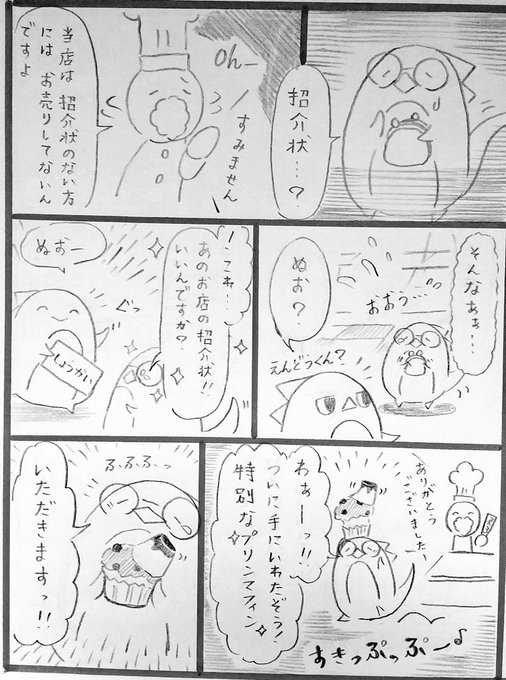 紹介状…?
Oh—
すみません
当店は 紹介状のない方
には お売りしてないん
ですよ
そんなあぁ…
おおぅ…
ぬお?
えんどうくん?
こわ…
あのお店の紹介状!!
いいんですか?
ぐっ
ぬおー
しょうかい
ありがとう
ございました
わぁーっ!!
ついに手にいれたぞぅ!
特別なプリンマフィン
すきっぷっぷー♪
ふふふっ
いただきますっ!!